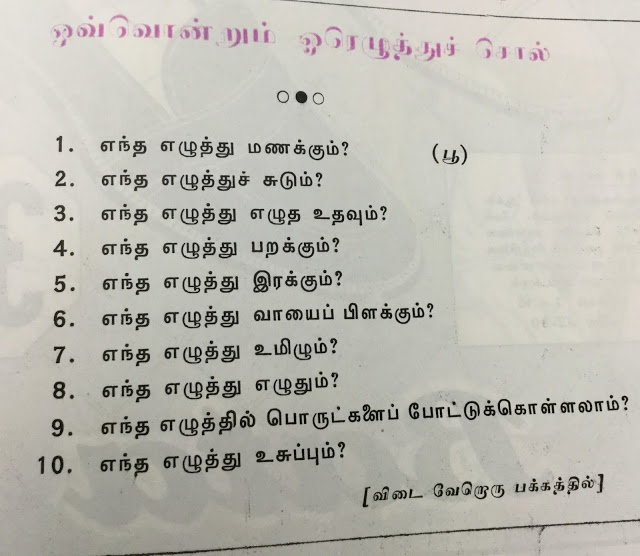 ஒவ்வொன்றும் ஓரெழுத்துச் சொல்
1. எந்த எழுத்து மணக்கும்? (பூ)
2. எந்த எழுத்துச் சுடும்?
3. எந்த எழுத்து எழுத உதவும்?
4. எந்த எழுத்து பறக்கும்?
5. எந்த எழுத்து இரக்கும்?
6. எந்த எழுத்து வாயைப் பிளக்கும்?
7. எந்த எழுத்து உமிழும்?
8. எந்த எழுத்து எழுதும்?
9. எந்த எழுத்தில் பொருட்களைப் போட்டுக்கொள்ளலாம்?
10. எந்த எழுத்து உசுப்பும்?
[விடை வேறொரு பக்கத்தில்]